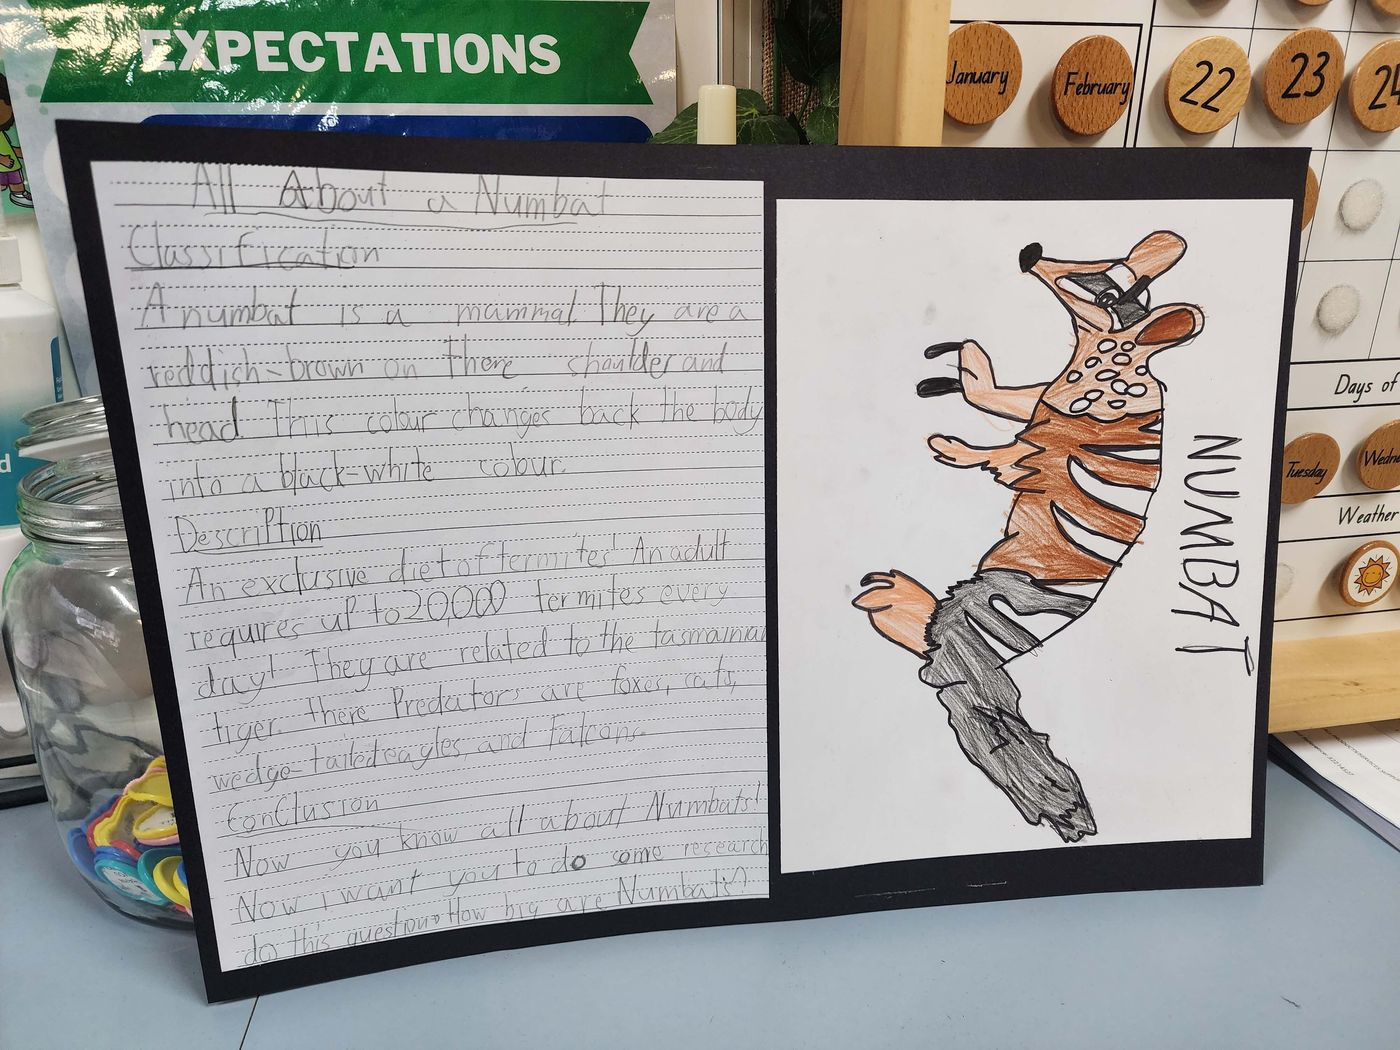 EXPECTATIONS
January
February
22
23
24
All About a Numbat
Classification
A numbat is a mammal. They are a
reddish-brown on there shoulder and
head. This colour changes back the body
into a black-white colour.
Description
An exclusive diet of termites! An adult
requires up to 20,000 termites every
day! They are related to the tasmainian
tiger. there Predators are foxes, cats,
wedge-tailed eagles, and falcons.
Conclusion
Now you know all about Numbats!
Now i want you to do some research
do this question How big are Numbats?
NUMBAT
Days of
Tuesday
Weather